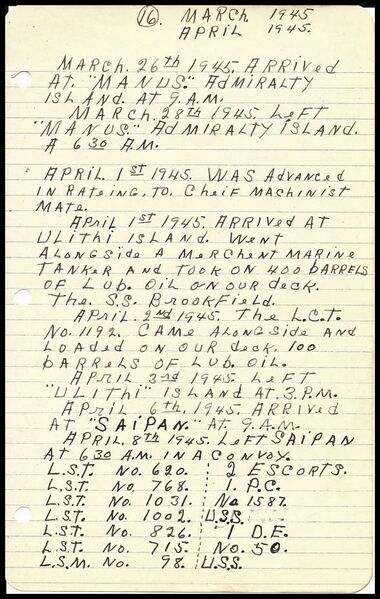 16. MARCH 1945
APRIL 1945.
MARCH. 26th 1945. ARRIVED
AT. "MANUS." ADMIRALTY
ISLAND. AT 9. A.M.
MARCH. 28th 1945. LEFT
"MANUS." ADMIRALTY ISLAND.
A 6 30 A.M.
APRIL 1ST 1945. WAS ADVANCED
IN RATEING, TO. CHEIF MACHINIST
MATE.
APRIL 1ST 1945. ARRIVED AT
ULITHI ISLAND. WENT
ALONGSIDE A MERCHENT MARINE
TANKER AND TOOK ON 400 BARRELS
OF LUB. OIL ON OUR DECK.
THE. S.S. BROOKFIELD.
APRIL. 2nd 1945. THE L.C.T.
NO. 1192. CAME ALONGSIDE AND
LOADED ON OUR DECK. 100
BARRELS OF LUB. OIL.
APRIL 3rd 1945. LEFT
"ULITHI" ISLAND AT. 3. P.M.
APRIL 6th. 1945. ARRIVED
AT "SAIPAN." AT 9. A.M.
APRIL. 8th 1945. LEFT SAIPAN
AT 6 30 A.M. IN A CONVOY.
L.S.T. NO. 620. 2 ESCORTS.
L.S.T. NO. 768. 1. P.C.
L.S.T. NO. 1031. NO 1587.
L.S.T. NO. 1002. U.S.S.
L.S.T. NO. 826. 1 D.E.
L.S.T. NO. 715. NO. 50.
L.S.M. NO. 98. U.S.S.